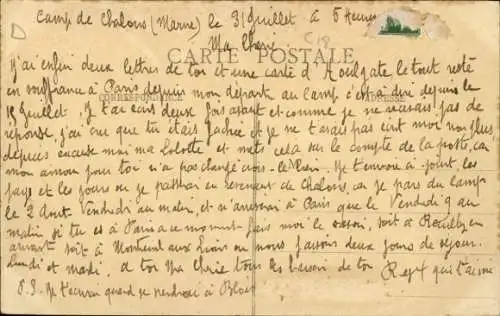 Camp de Chalons (Marne) le 31 Juillet à 5 heures
Ma Cherie
CARTE POSTALE
J'ai enfin deux lettres de toi et une carte d'Houlgate le tout resté
en souffrance à Paris depuis mon départ au camp c'est à dire depuis le
CORRESPONDANCE ADRESSE
Juillet. Je t'ai écris deux fois avant et comme je ne recevais pas de
réponse, j'ai cru que tu étais fachée et je ne t'avais pas écrit moi non plus,
depuis excuse moi ma Lolotte et mets cela sur le compte de la poste, car
mon amour pour toi n'a pas changé crois-le bien. Je t'envoie ci-joint, les
pays et les jours où je passerai en revenant de Chalons, car je pars du camp
le 2 Aout Vendredi au matin, et n'arriverai à Paris que le Vendredi 9 au
matin si tu es à Paris a ce moment fais moi le savoir, soit à
arrivant soit à Montreuil aux Lions où nous faisons deux jours de séjour.
Lundi et mardi, a toi Ma Cherie tous les baisers de ton qui t'aime
P.S. Je t'écrirai quand je viendrai à Blois